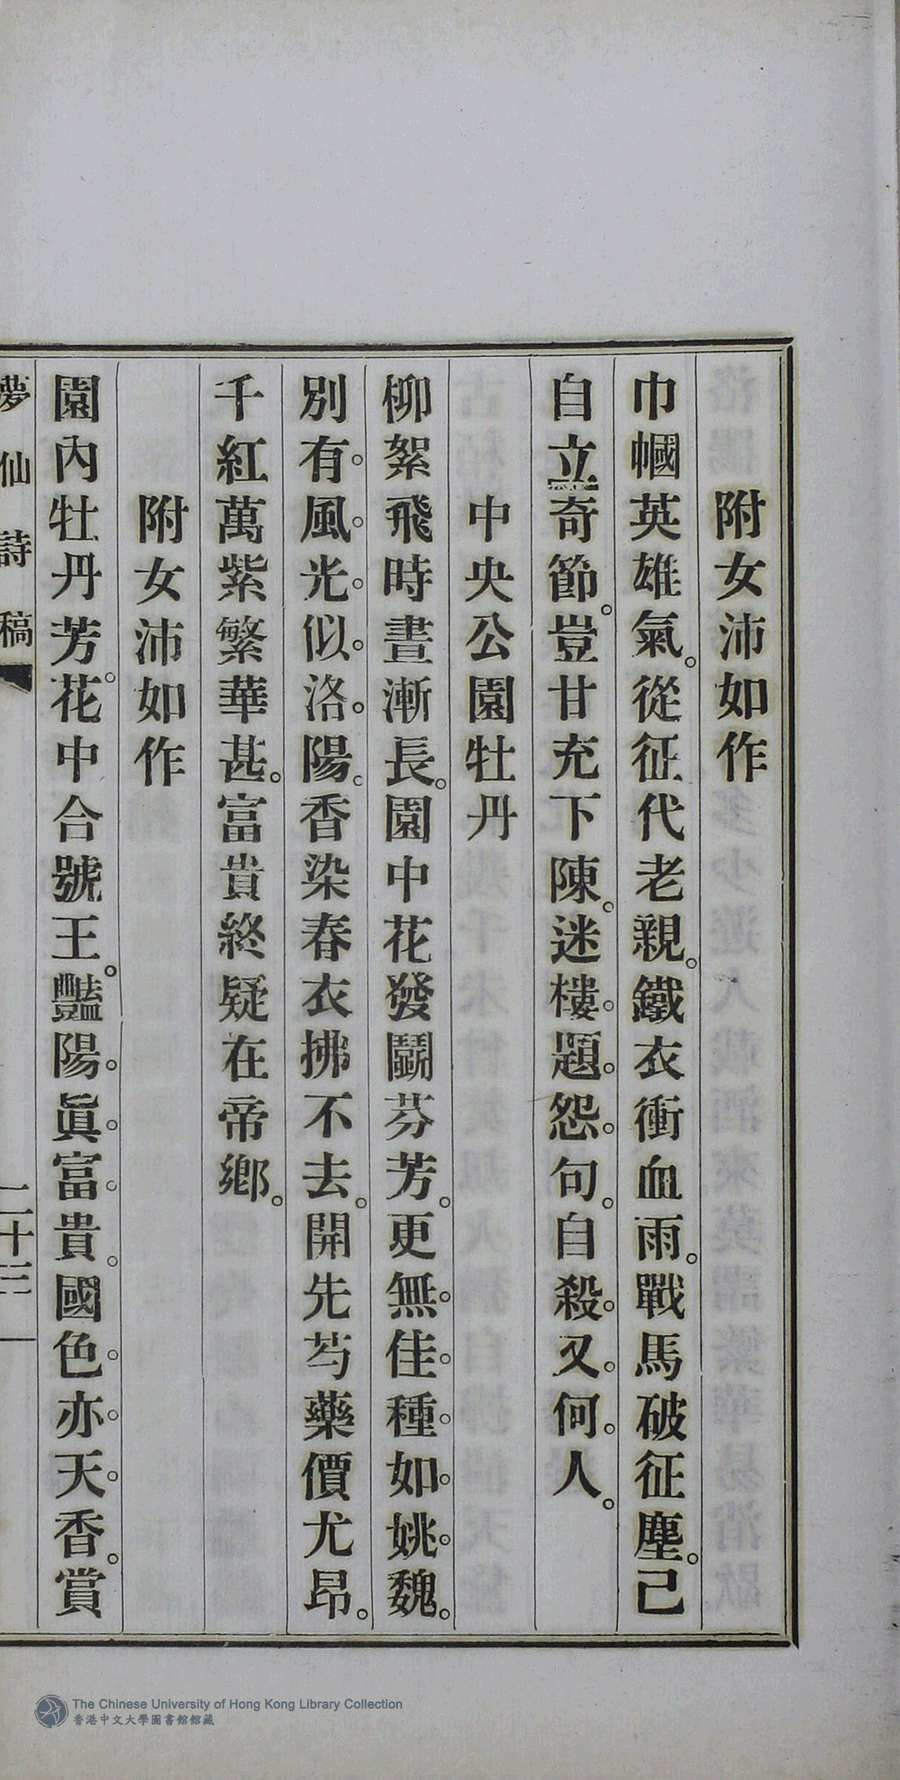 附女沛如作
巾幗英雄氣。從征代老親。鐵衣衝血雨。戰馬破征塵。己
自立奇節。豈甘充下陳。迷樓題怨句。自殺又何人。
中央公園牡丹
柳絮飛時晝漸長。園中花發鬭芬芳。更無佳種如姚魏。
別有風光似洛陽。香染春衣拂不去。開先芍藥價尤昂。
千紅萬紫繁華甚。富貴終疑在帝鄉。
附女沛如作
園內牡丹芳。花中合號王。豔陽眞富貴。國色亦天香。賞
夢仙詩稿
二十三
The Chinese University of Hong Kong Library Collection
香港中文大學圖書館館藏